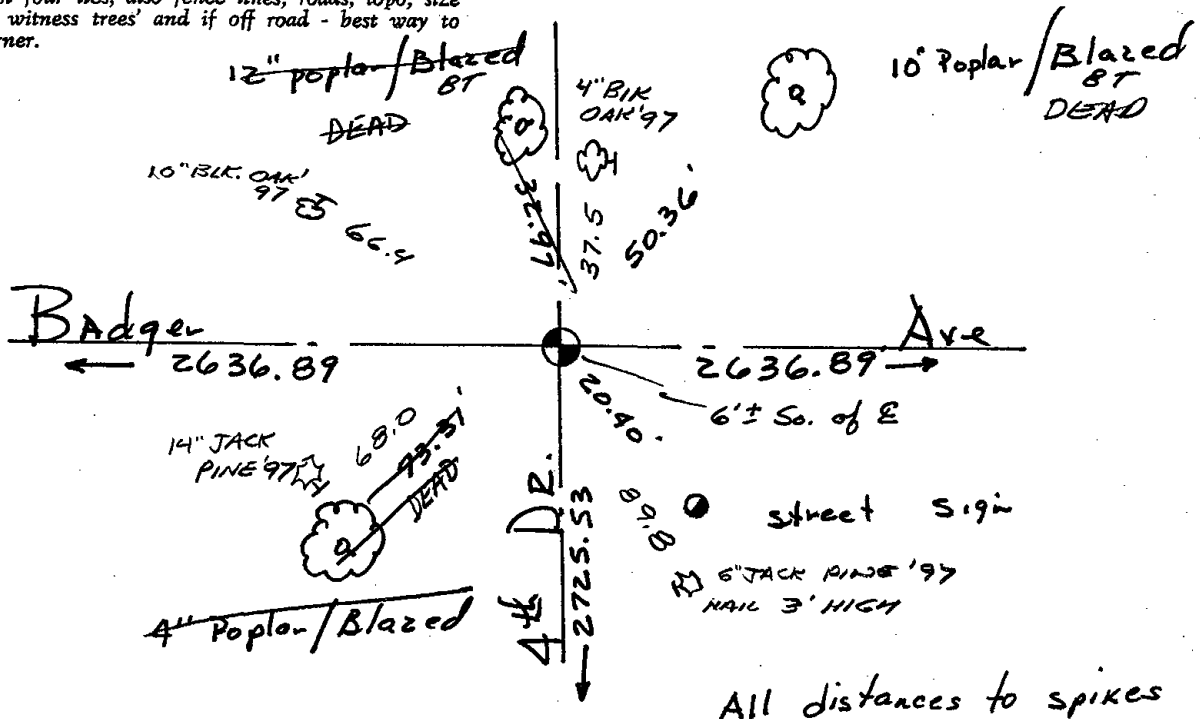 four ties, also fence lines, roads, topo, size
witness trees' and if off road - best way to
12" poplar/Blazed
BT
DEAD
4" Blk
OAK '97
10" Poplar/Blazed
BT
DEAD
10" BLK. OAK'
97
66.4
32.97'
37.5
50.36'
Badger
Ave
2636.89
2636.89'
20.40'
6'± So. of
14" JACK
PINE '97
68.0
73.37'
DEAD
4" Poplar/Blazed
4th DR.
2725.53
89.8
street sign
6" JACK PINE '97
NAIL 3' HIGH
All distances to spikes